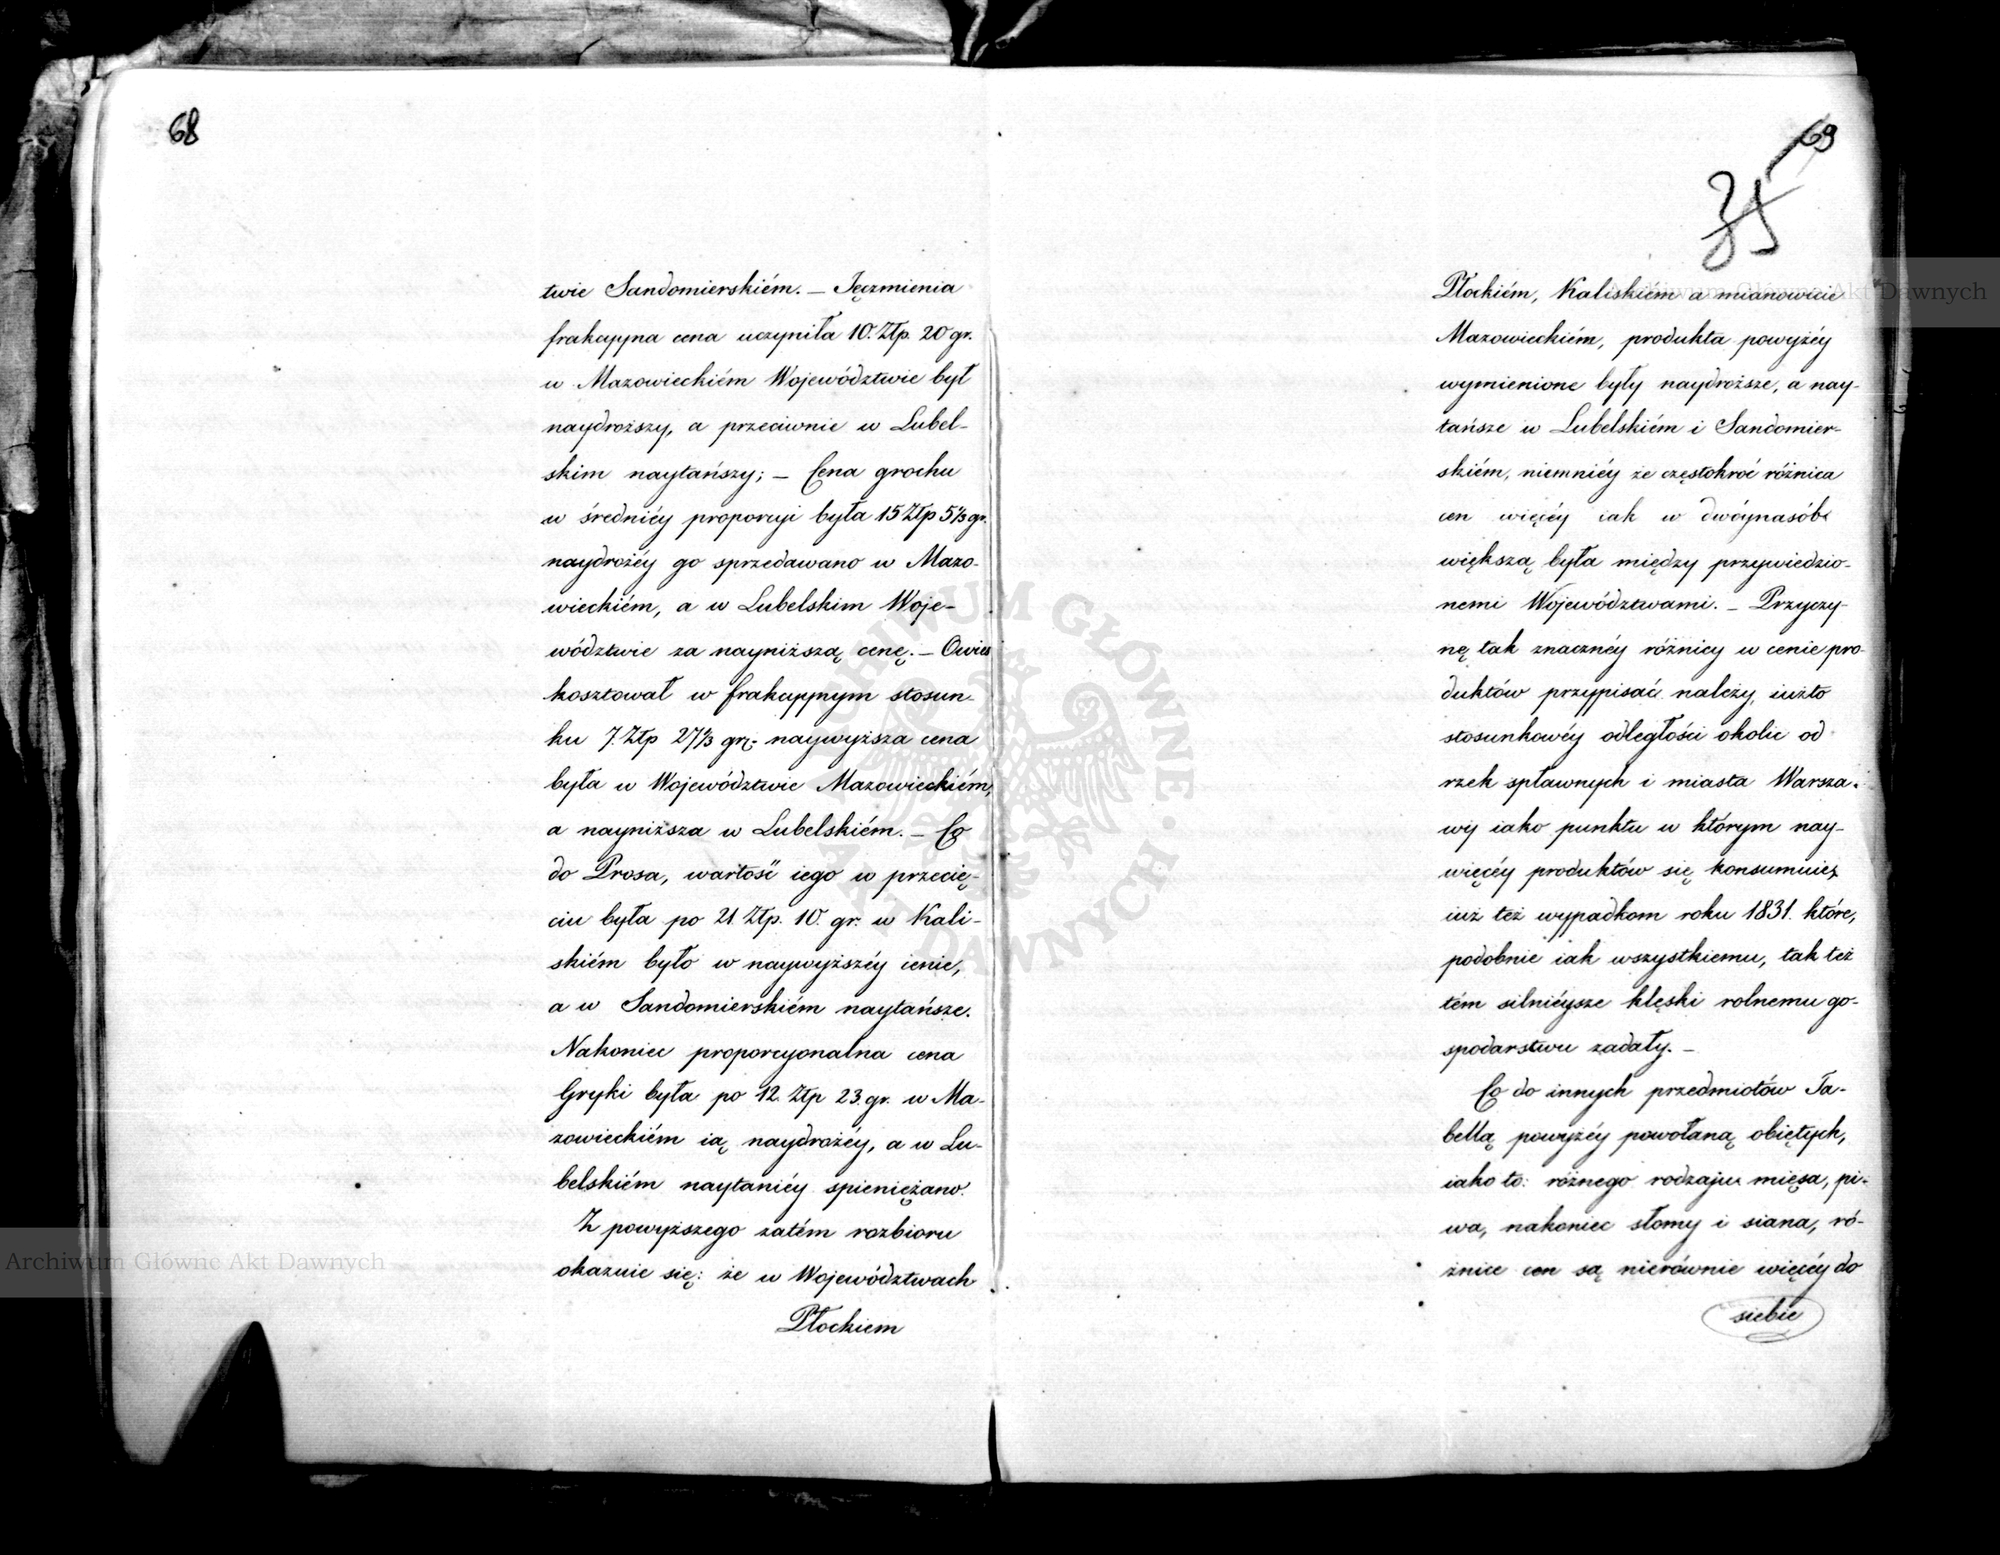 68
twie Sandomierskiém. – Jęczmienia
frakcyyna cena uczyniła 10. Złp. 20 gr.
w Mazowieckiém Województwie był
naydroższy, a przeciwnie w Lubel-
skim naytańszy; – Cena grochu
w średniéy proporcyi była 15 Złp 5⅓ gr.
naydrożéy go sprzedawano w Mazo-
wieckiém, a w Lubelskim Woje-
wództwie za nayniższą cenę. – Owies
kosztował w frakcyynym stosun-
ku 7. Złp 27⅓ gr; naywyższa cena
była w Województwie Mazowieckiém,
a nayniższa w Lubelskiém. – Co
do Prosa, wartość iego w przecię-
ciu była po 21 Złp. 10. gr. w Kali-
skiém było w naywyższéy cenie,
a w Sandomierskiém naytańsze.
Nakoniec proporcyonalna cena
Gryki była po 12. Złp 23. gr. w Ma-
zowieckiém ią naydrożéy, a w Lu-
belskiém naytaniéy spieniężano.
Z powyższego zatém rozbioru
okazuie się: że w Województwach
Płockiem
69
35
Płockiém, Kaliskiém a mianowicie
Mazowieckiém, produkta powyżéy
wymienione były naydroższe, a nay-
tańsze w Lubelskiém i Sandomier-
skiém, niemniéy że częstokroć różnica
cen więcéy iak w dwóynasób
większą była między przywiedzio-
nemi Województwami. – Przyczy-
nę tak znacznéy różnicy w cenie pro-
duktów przypisać należy, iużto
stosunkowéy odległości okolic od
rzek spławnych i miasta Warsza-
wy iako punktu w którym nay-
więcéy produktów się konsumuie,
iuż też wypadkom roku 1831. które,
podobnie iak wszystkiemu, tak też
tém silniéysze klęski rolnemu go-
spodarstwu zadały. –
Co do innych przedmiotów Ta-
bellą powyżéy powołaną obiętych,
iako to: różnego rodzaju mięsa, pi-
wa, nakoniec słomy i siana, ró-
żnice cen są nierównie więcéy do
siebie
Archiwum Główne Akt Dawnych
Archiwum Główne Akt Dawnych
ARCHIWUM GŁÓWNE AKT DAWNYCH